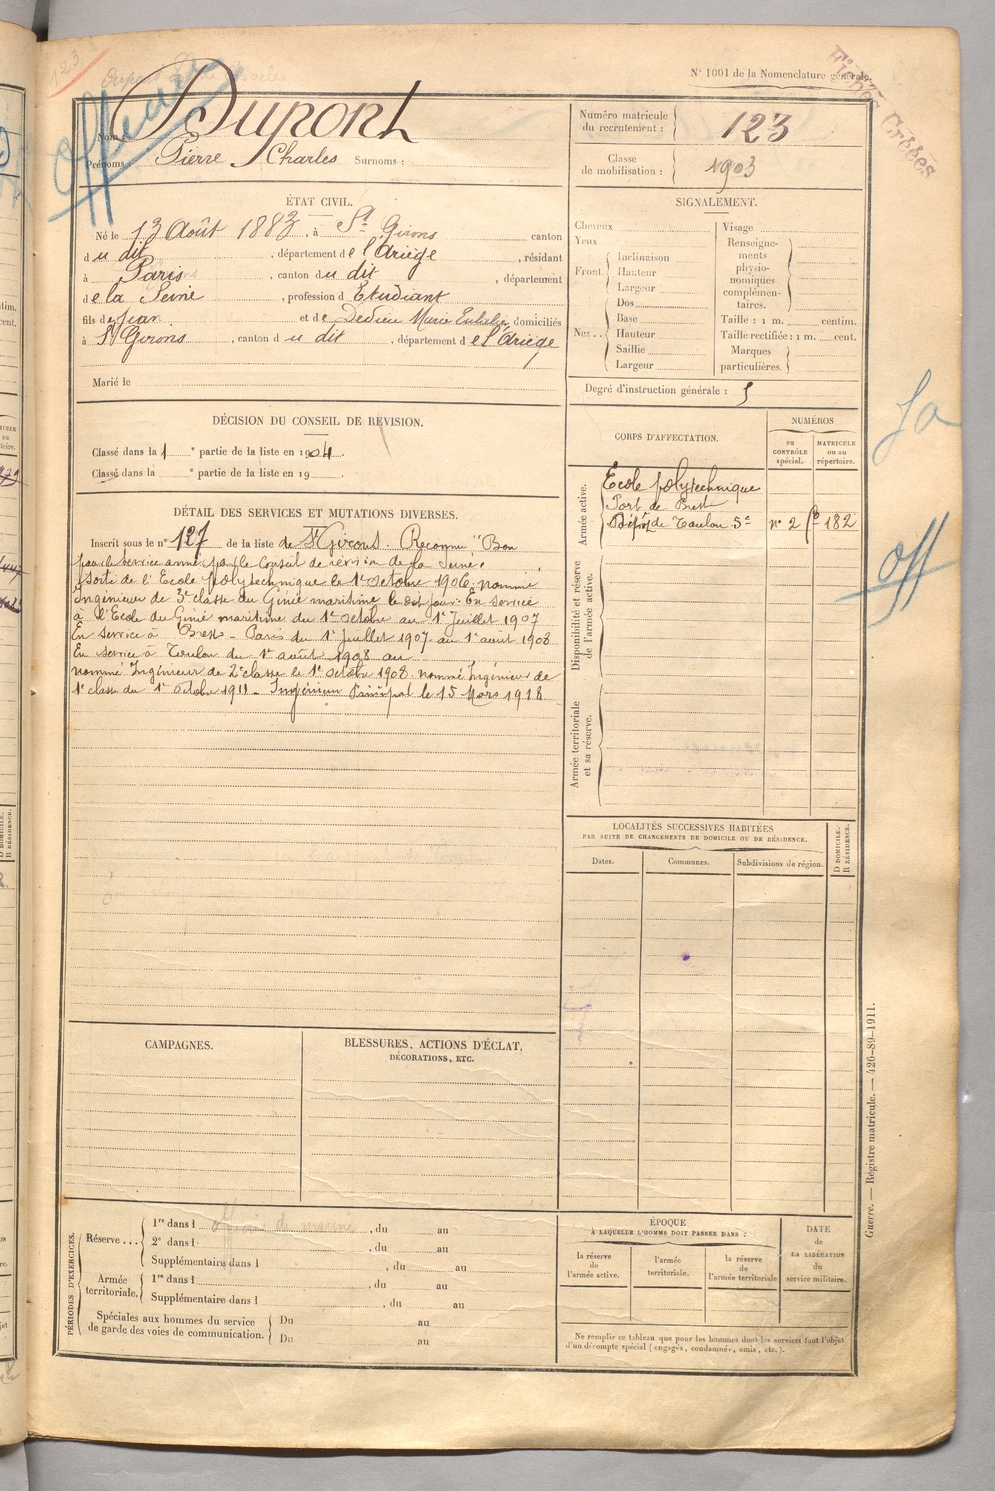 123
Officier
N° 1001 de la Nomenclature générale.
Fiches Créées
Nom : Dupont
Prénoms : Pierre Charles Surnoms :
Numéro matricule du recrutement : 123
Classe de mobilisation : 1903
ÉTAT CIVIL.
Né le 13 Août 1883, à St Girons canton
du dit, département de l'Ariège, résidant
à Paris, canton du dit, département
de la Seine, profession d Etudiant
fils de Jean et de Dedieu Marie Eulalie, domiciliés
à St Girons, canton du dit, département de l'Ariège
Marié le
SIGNALEMENT.
Cheveux
Yeux
Front. Inclinaison
Hauteur
Largeur
Nez.. Dos
Base
Hauteur
Saillie
Largeur
Visage
Renseignements physionomiques complémentaires.
Taille : 1 m. centim.
Taille rectifiée : 1 m. cent.
Marques particulières.
Degré d'instruction générale : 5
DÉCISION DU CONSEIL DE REVISION.
Classé dans la 1e partie de la liste en 1904.
Classé dans la e partie de la liste en 19 .
CORPS D'AFFECTATION.
NUMÉROS
au CONTRÔLE spécial.
MATRICULE ou au répertoire.
Armée active.
Ecole polytechnique
Port de Brest
Dépôt de Toulon 5e n° 2 182
Disponibilité et réserve de l'armée active.
Armée territoriale et sa réserve.
off
DÉTAIL DES SERVICES ET MUTATIONS DIVERSES.
Inscrit sous le n° 127 de la liste de St Girons. Reconnu "Bon
pour le service armé" par le Conseil de révision de la Seine.
Sorti de l'Ecole polytechnique le 1er octobre 1906. nommé
Ingénieur de 3e classe du Génie maritime le dit jour. En service
à l'Ecole du Génie maritime du 1er octobre au 1er Juillet 1907
En service à Brest - Paris du 1er Juillet 1907 au 1er août 1908
En service à Toulon du 1er août 1908 au
nommé Ingénieur de 2e classe le 1er octobre 1908. nommé Ingénieur de
1e classe du 1er octobre 1911 - Ingénieur Principal le 15 Mars 1918
LOCALITÉS SUCCESSIVES HABITÉES
PAR SUITE DE CHANGEMENTS DE DOMICILE OU DE RÉSIDENCE.
Dates.
Communes.
Subdivisions de région.
D DOMICILE. R RÉSIDENCE.
CAMPAGNES.
BLESSURES, ACTIONS D'ÉCLAT,
DÉCORATIONS, ETC.
PÉRIODES D'EXERCICES.
Réserve... 1re dans l officier de marine, du au
2e dans l , du au
Supplémentaire dans l , du au
Armée territoriale. 1re dans l , du au
Supplémentaire dans l , du au
Spéciales aux hommes du service de garde des voies de communication. Du au
Du au
ÉPOQUE
À LAQUELLE L'HOMME DOIT PASSER DANS :
la réserve de l'armée active.
l'armée territoriale.
la réserve de l'armée territoriale
DATE de LA LIBÉRATION du service militaire.
Ne remplir ce tableau que pour les hommes dont les services font l'objet
d'un décompte spécial (engagés, condamnés, omis, etc.).
Guerre. — Registre matricule. — 426-89-1911.